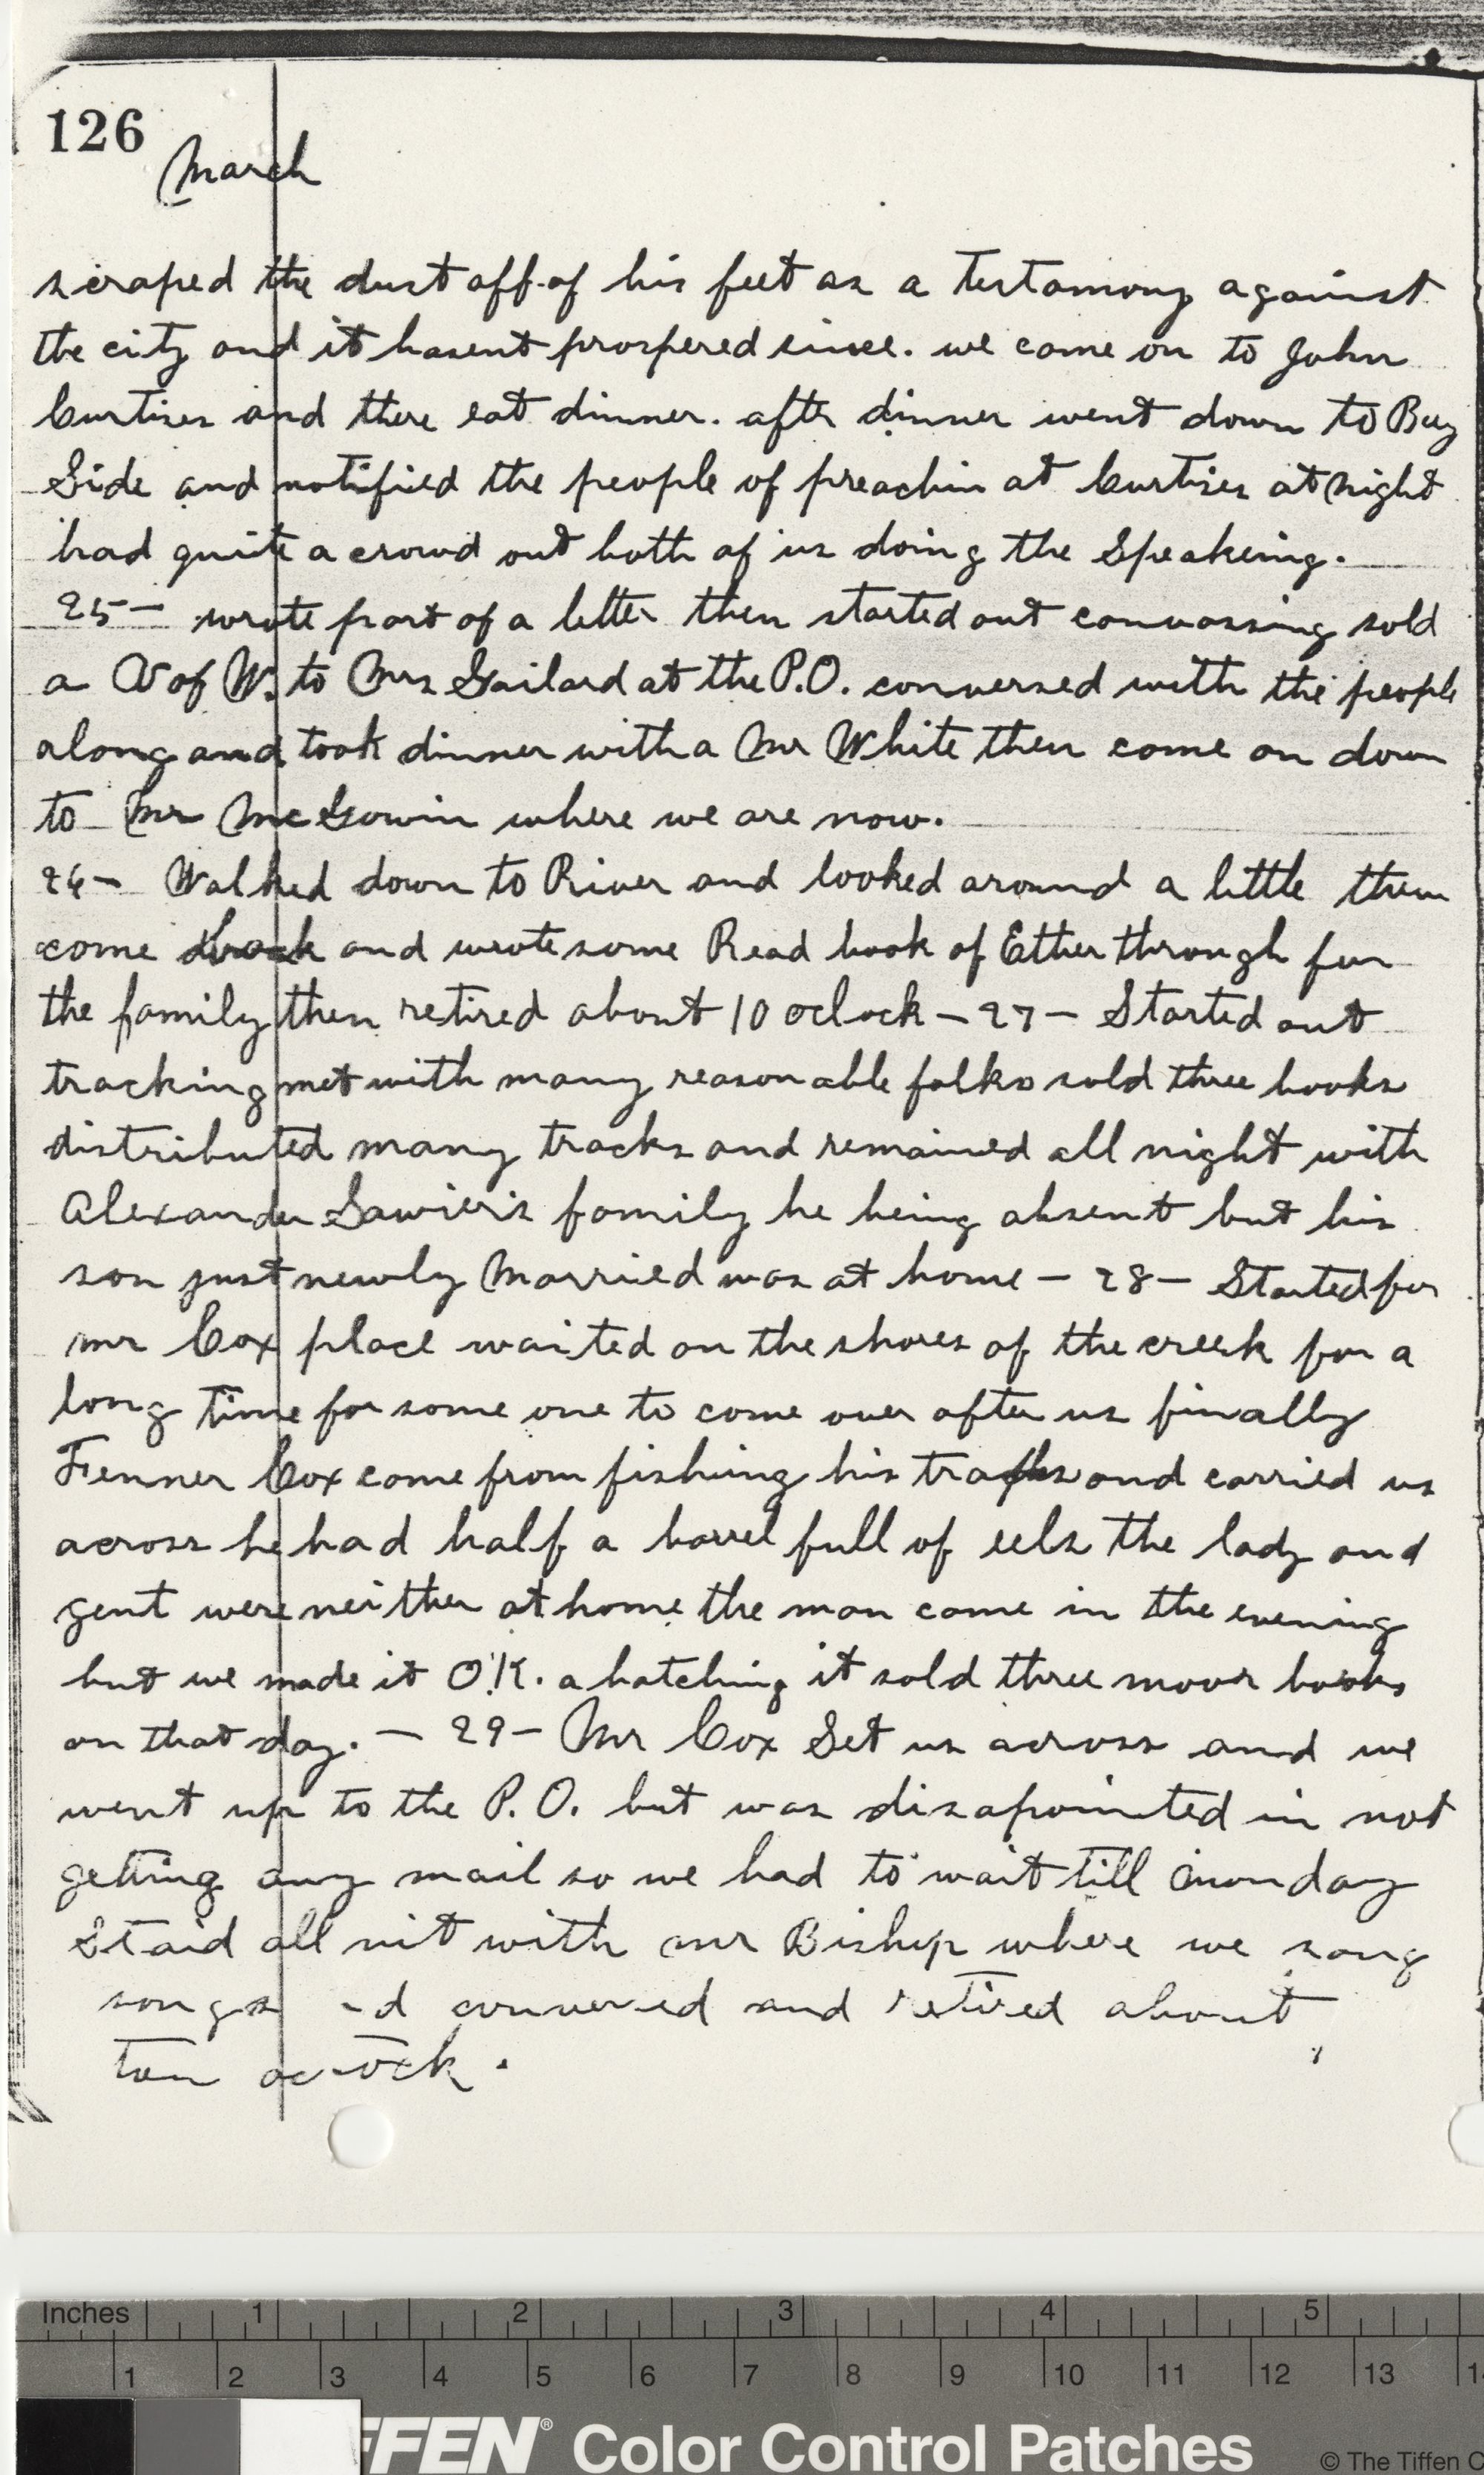 126
March
scraped the dust off of his feet as a testamony against
the city and it hasent prospered since. we come on to John
Curtises and there eat dinner. after dinner went down to Bay
Side and notified the people of preachin at Curtises at night
had quite a crowd out both of us doing the Speakeing.
25 — wrote part of a letter then started out canvassing sold
a V of W. to Mrs Gailard at the P.O. conversed with the people
along and took dinner with a Mr White then come on down
to Mr McGowin where we are now.
26 — Walked down to River and looked around a little then
come back and wrote some Read book of Ether through fur
the family then retired about 10 oclock — 27 — Started out
tracking met with many reasonable folks sold three books
distributed many tracks and remained all night with
Alexander Sawier's family he being absent but his
son just newly Married was at home — 28 — Started fur
mr Cox place waited on the shores of the creek for a
long time for some one to come over after us finally
Fenner Cox come from fishing his traps and carried us
across he had half a barrel full of eels the lady and
gent were neither at home the man came in the evening
but we made it O.K. a batching it sold three moor books
on that day. — 29 — Mr Cox Set us across and we
went up to the P.O. but was disapointed in not
getting any mail so we had to wait till monday
Staid all nit with mr Bishop where we sang
songs conversed and retired about
ten
Inches 1 2 3 4 5
1 2 3 4 5 6 7 8 9 10 11 12 13
FFEN® Color Control Patches
© The Tiffen